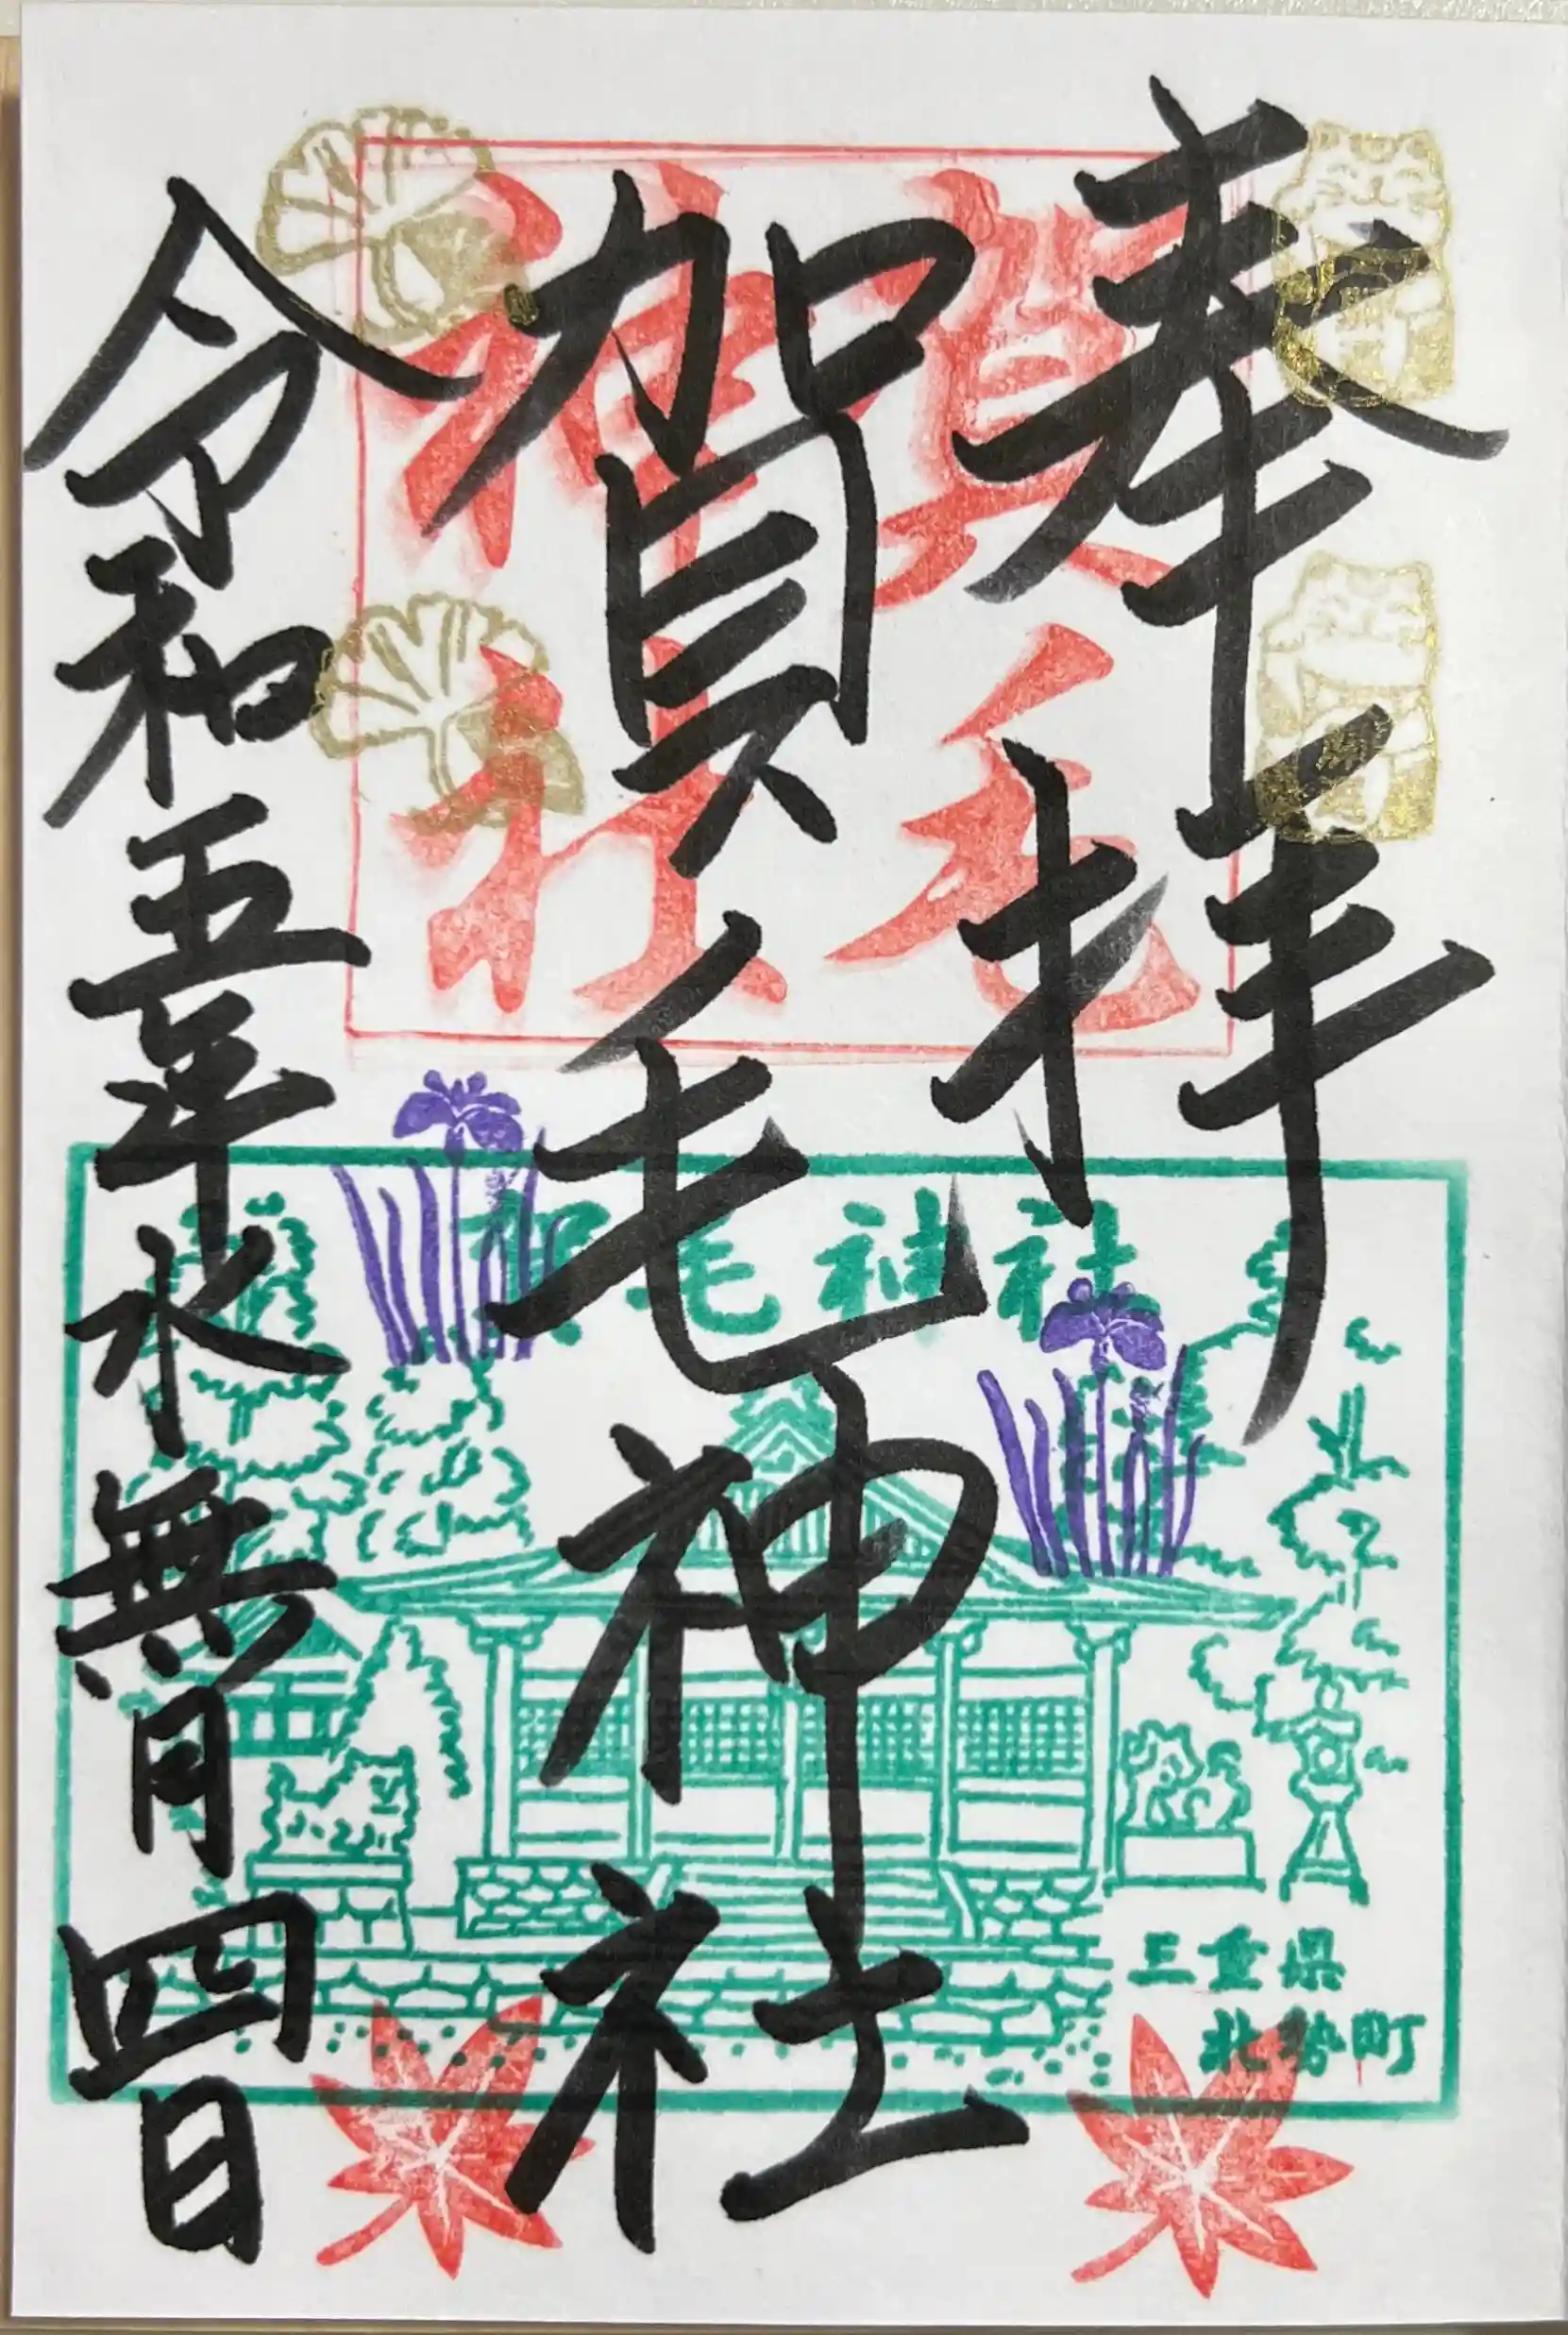 奉拝
賀毛神社
令和五年水無月四日
賀毛
神社
賀毛神社
三重県
北勢町